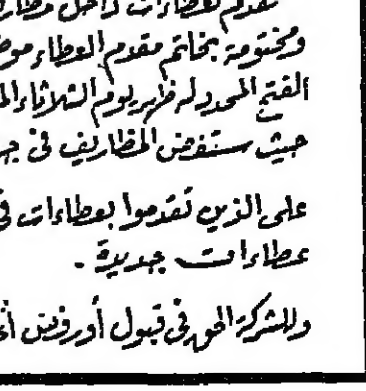 تقدم العطاءات داخل مظار
ومختومة بخاتم مقدم العطاء موض
الفتح المحدد له ظهر يوم الثلاثاء الم
حيث ستفض المظاريف في ج
على الذين تقدموا بعطاءات في
عطاءات جديدة .
وللشركة الحق في قبول أو رفض أي